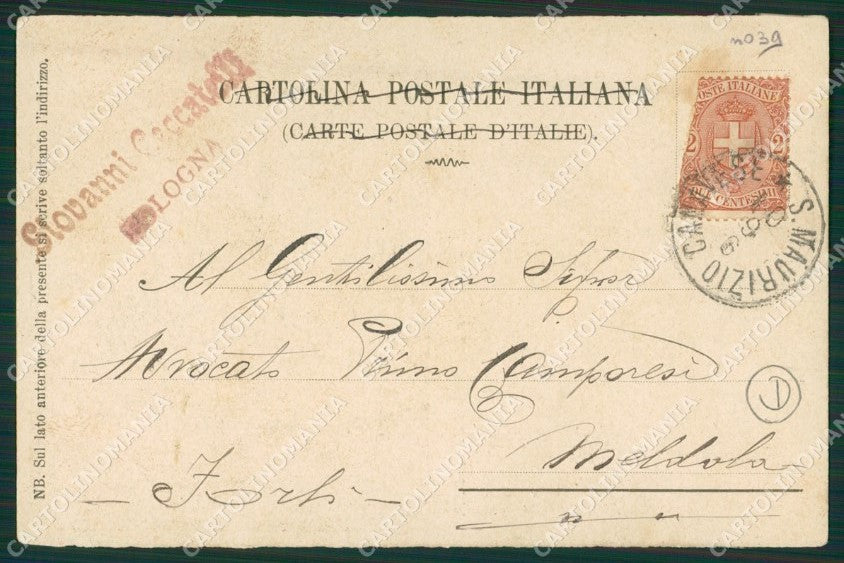 n039
CARTOLINA POSTALE ITALIANA
(CARTE POSTALE D'ITALIE).
NB. Sul lato anteriore della presente si scrive soltanto l'indirizzo.
Giovanni Ceccatelli
BOLOGNA
POSTE ITALIANE
2 2
CENTESIMI
S. MAURIZIO CANAVESE
Al Gentilissimo Signor
Avvocato Primo Camporesi
D
Meldola
- Forlì -
CARTOLINOMANIA